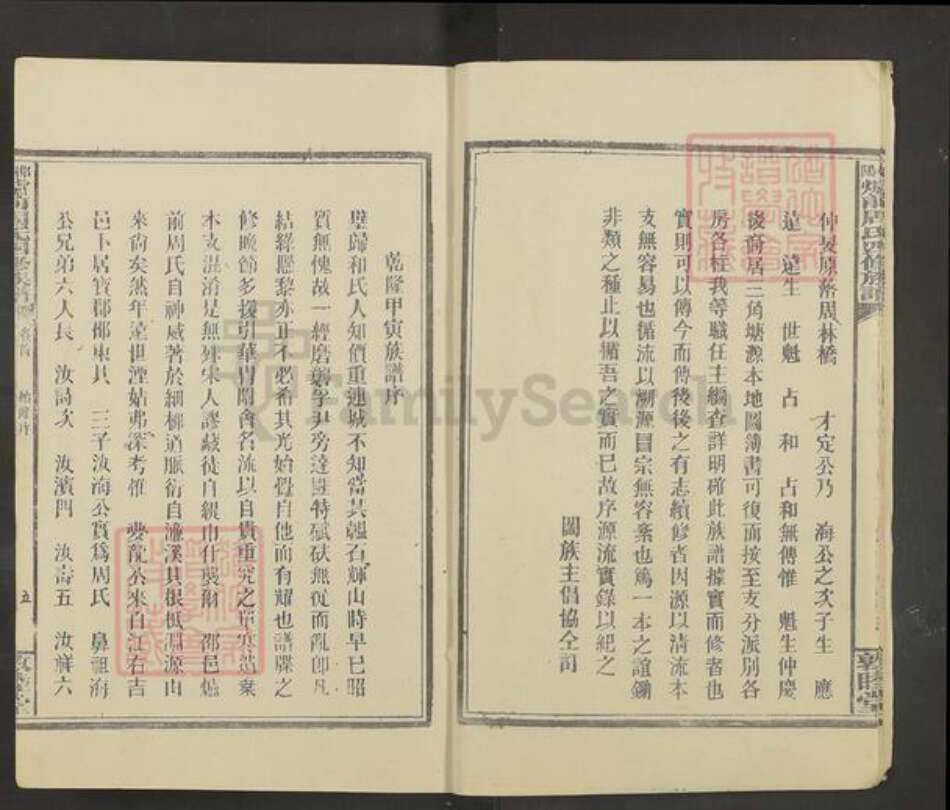 仲㚬原落周林橋　才定公乃　海公之次子生　應
遠　達生　世魁　占　和　占和無傳惟　魁生仲慶
後裔居三角塘源本地圖簿書可復而按至支分派別各
房各在我等職任主編查詳明確此族譜據實而修者也
實則可以傳今而傳後後之有志續修者因源以清流本
支無容易也循流以溯源冒宗無容紊也篤一本之誼鋤
非類之種止以循吾之實而已故序源流實錄以紀之
闔族主倡協仝訂
敦睦堂
乾隆甲寅族譜序
璧歸和氏人知價重連城不知當其韞石輝山時早已昭
質無愧故一經磨礱孚尹旁達匪特碔砆無從而亂卽凡
結綠懸黎亦正不必希其光始覺自他而有耀也譜牒之
修晚節多援引華冑閥會名流以自貴重究之單寒詰棄
本支混淆是無殊宋人謬藏徒自緹巾什襲爾　邵邑爐
前周氏自神威著於細柳道脈衍自濂溪其根柢淵源由
來尚矣然年遠世湮姑弗深考惟　夢龍公來自江右吉
邑卜居寶郡邵東具　三子汝海公實為周氏　鼻祖海
公兄弟六人長　汝詩次　汝濱四　汝壽五　汝祥六
卷首
五
FamilySearch